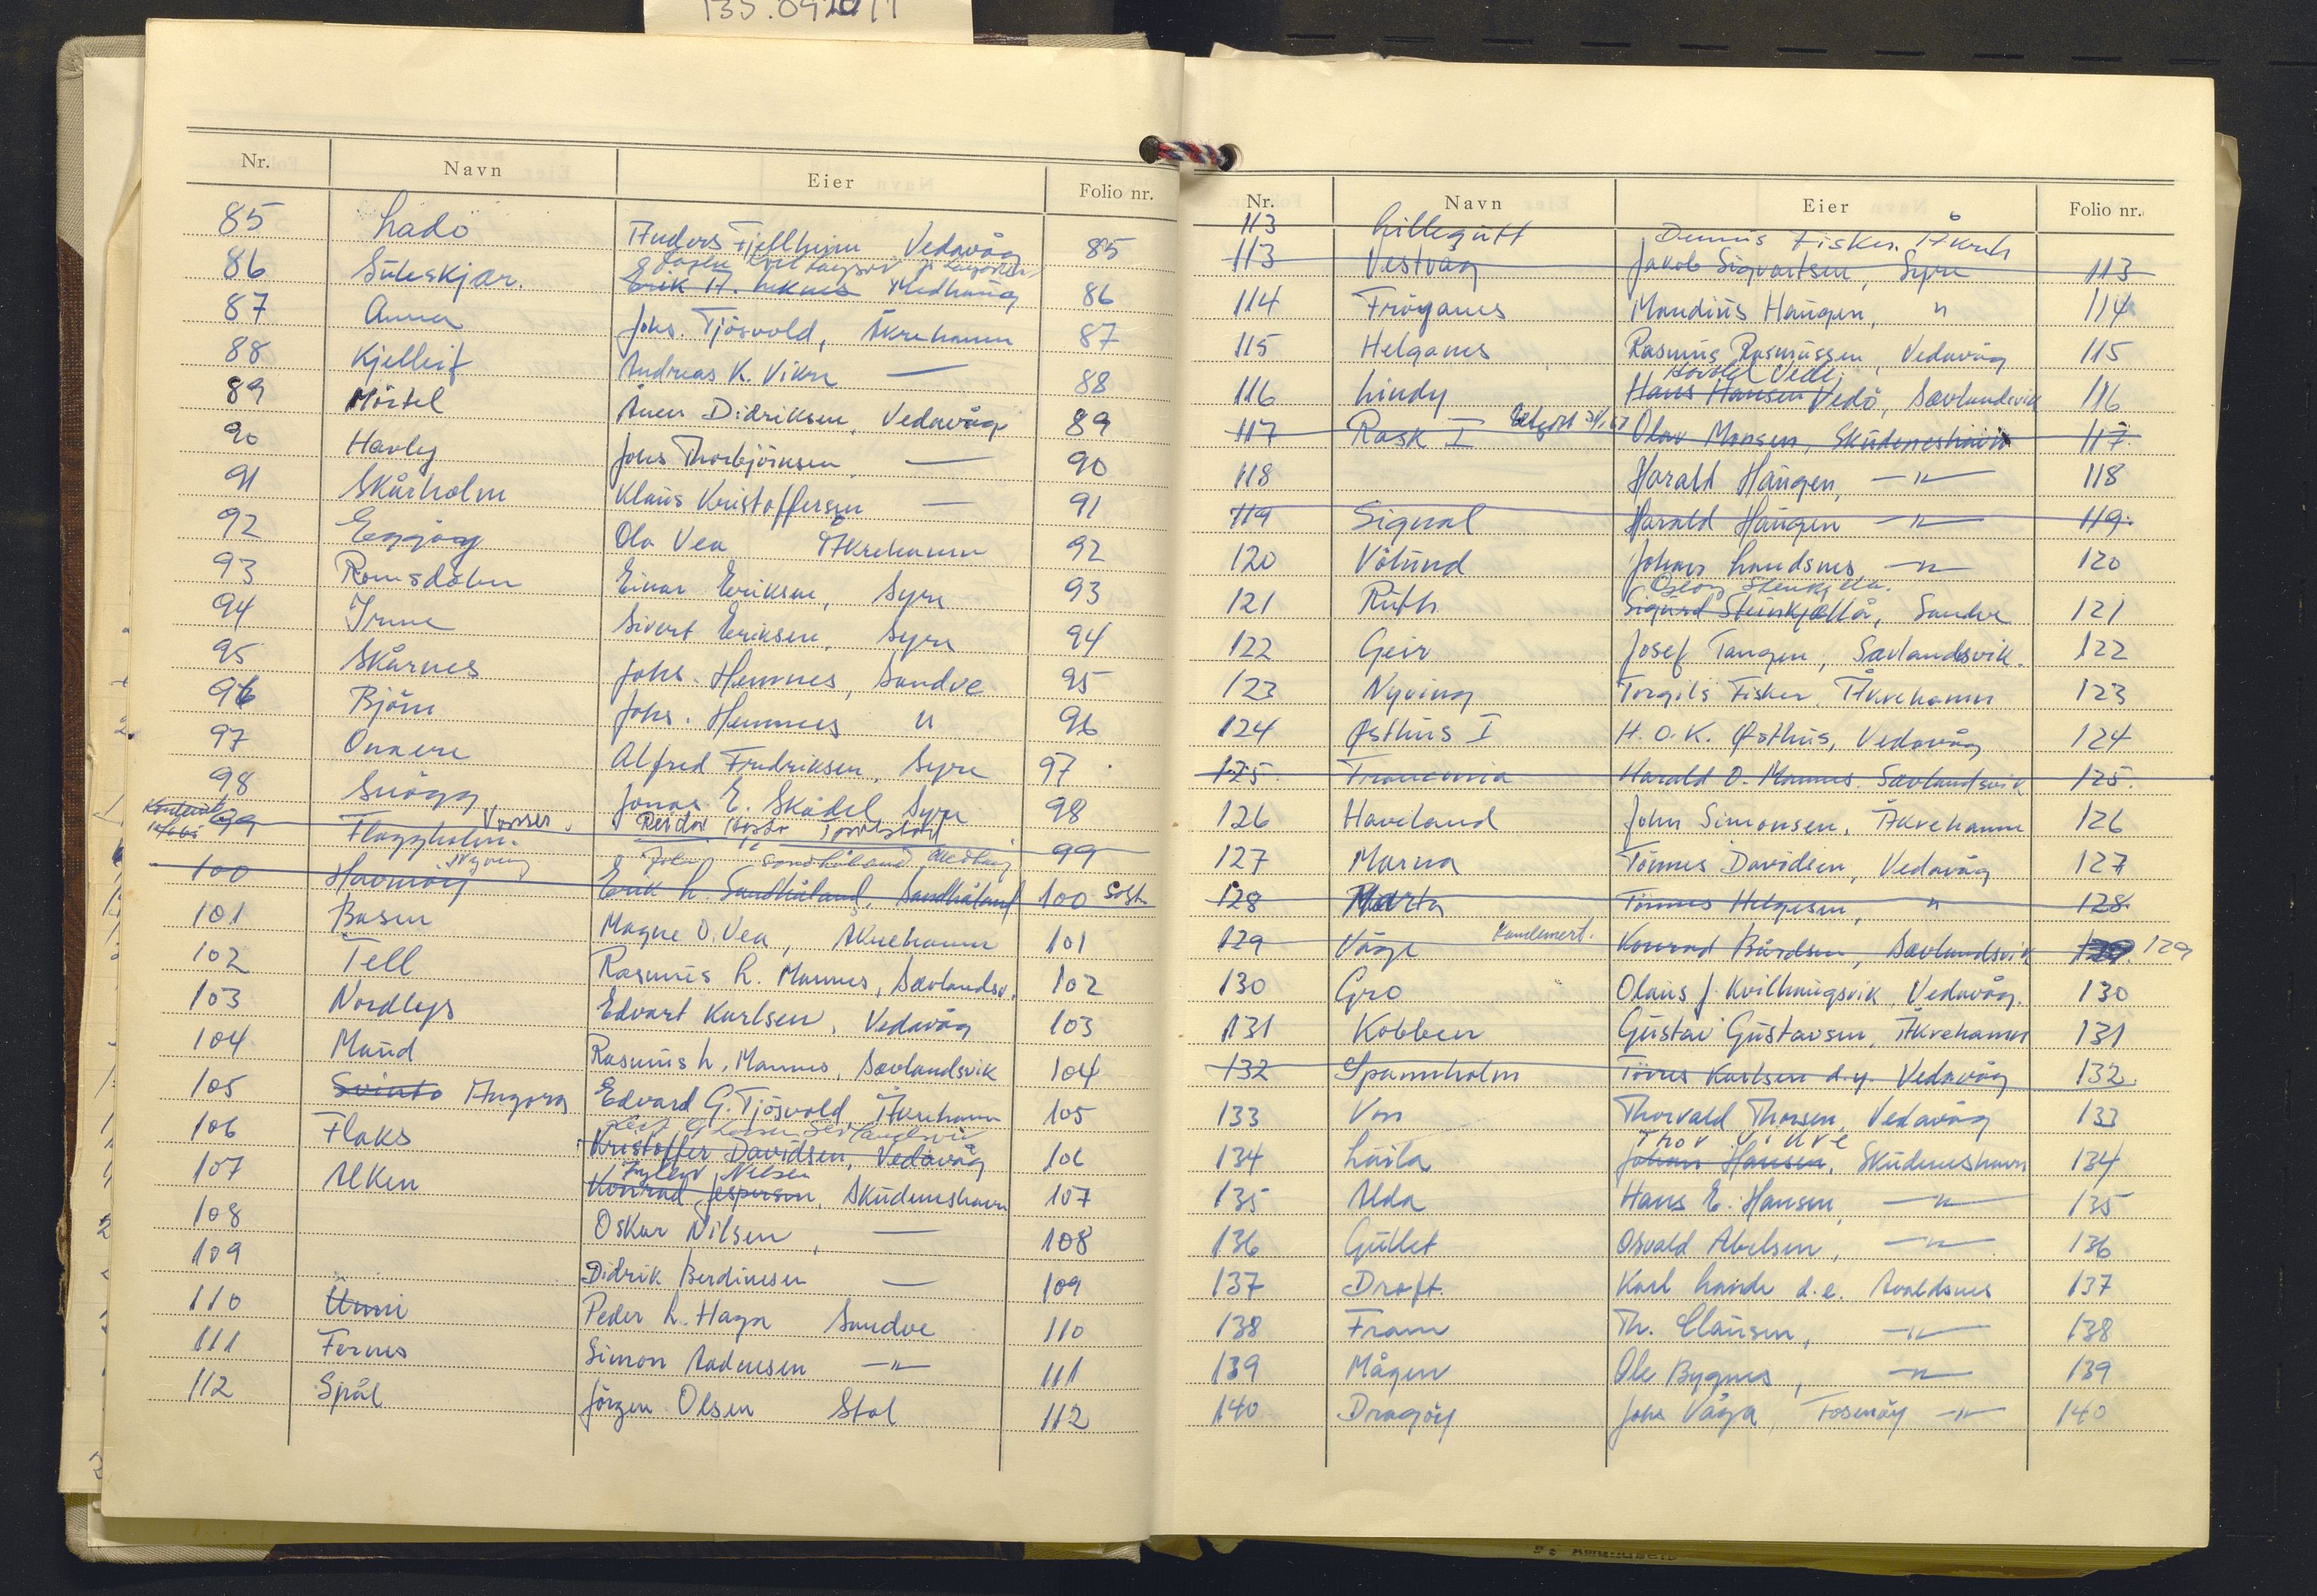 Nr. Navn Eier Folio nr.
85 Ladö Anders Fjellheim, Vedavåg 85
86 Suleskjær. Erik H. Leknes Medhaug 86
87 Anna Johs. Tjösvold, Åkrehamn 87
88 Kjelleif Andreas K. Vikre — 88
89 Mörtel Didriksen, Vedavåg 89
90 Havley Johs Thorbjörnsen — 90
91 Skårholm Klaus Kristoffersen — 91
92 Eggöy Ola Vea Åkrehamn 92
93 Romsdalen Einar Eriksen, Syre 93
94 Irene Sivert Eriksen, Syre 94
95 Skårnes Johs. Hemnes, Sandve 95
96 Björn Johs. Hemnes " 96
97 Onnere Alfred Fredriksen, Syre 97
98 Snögg Jonas E. Skådel, Syre 98
Reidar
99 Flaggholm. 99
John Sandhåland
100 Havnöy Erik L. Sandhåland, Sandhåland 100
101 Basen Magne O. Vea, Åkrehamn 101
102 Tell Rasmus L. Mannes, Sævlandsv. 102
103 Nordlys Edvart Karlsen, Vedavåg 103
104 Maud Rasmus L. Mannes, Sævlandsvik 104
105 Svinto Angora Edvard G. Tjösvold Åkrehamn 105
106 Flaks Kristoffer Davidsen, Vedavåg 106
Nilsen
107 Alken Konrad Jespersen, Skudeneshavn 107
108 Oskar Nilsen, — 108
109 Didrik Berdinesen — 109
110 Unni Peder L. Haga Sandve 110
111 Fernes Simon Aadnesen —"— 111
112 Spål Jörgen Olsen Stol 112
Nr. Navn Eier Folio nr.
113 Lillegutt Dennis Fisker. Åkreh
113 Vestvåg Jakob Sigvartsen, Syre 113
114 Fröyanes Mandius Haugen, " 114
115 Helganes Rasmus Rasmussen, Vedavåg 115
116 Lindy Hans Hansen Vedö, Sævlandsvik 116
117 Rask I Olav Monsen, Skudeneshavn 117
118 Harald Haugen, —"— 118
119 Signal Harald Haugen —"— 119.
120 Völund Johan Landsnes —"— 120
121 Ruth Sigurd Steinkjellå, Sandve 121
122 Geir Josef Tangen, Sævlandsvik. 122
123 Nyving Torgils Fisker, Åkrehamn 123
124 Østhus I H. O. K. Østhus, Vedavåg 124
125. Harald O. Mannes. Sævlandsvik 125.
126 Haveland John Simonsen, Åkrehamn 126
127 Marna Tönnes Davidsen, Vedavåg 127
128 Marta Tönnes Helgesen, " 128.
129 Våge Kondemert. Konrad Bårdsen, Sævlandsvik 129
130 Gro Olaus J. Kvilhaugsvik, Vedavåg. 130
131 Kobben Gustav Gustavsen, Åkrehamn 131
132 Spannholm Tönnes Karlsen d.y. Vedavåg 132
133 Von Thorvald Thorsen, Vedavåg 133
Thor Vikre
134 Laila Johan Hansen, Skudeneshavn 134
135 Alda Hans E. Hansen, —"— 135
136 Gullet Osvald Abelsen, —"— 136
137 Draft. Karl d.e. Avaldsnes 137
138 Fram Th. Clausen, —"— 138
139 Mågen Ole Bygnes, —"— 139
140 Dragöy Johs Våga, Fosenöy —"— 140